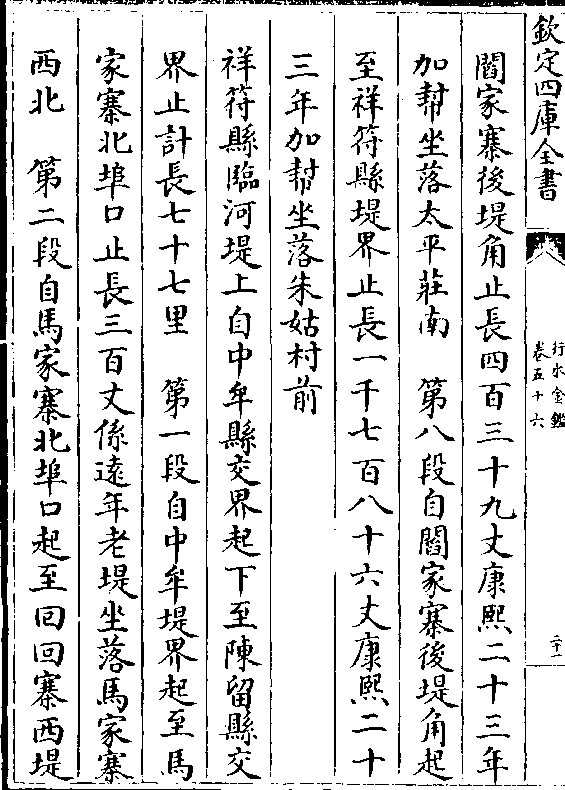 欽定四庫全書
行水金鑑
卷五十六
二十一
閻家寨後堤角止長四百三十九丈康熙二十三年
加幫坐落太平莊南　第八段自閻家寨後堤角起
至祥符縣堤界止長一千七百八十六丈康熙二十
三年加幫坐落朱姑村前
祥符縣臨河堤上自中牟縣交界起下至陳留縣交
界止計長七十七里　第一段自中牟堤界起至馬
家寨北埠口止長三百丈係遠年老堤坐落馬家寨
西北　第二段自馬家寨北埠口起至回回寨西堤